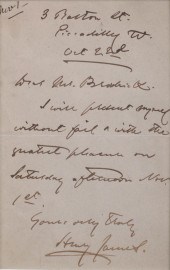 3 Bolton St.
Piccadilly W.
Oct 22d
Dear Mrs.
I will present myself
without fail & with the
greatest pleasure on
Saturday afternoon Nov.
1st.
Yours very truly
Henry James.